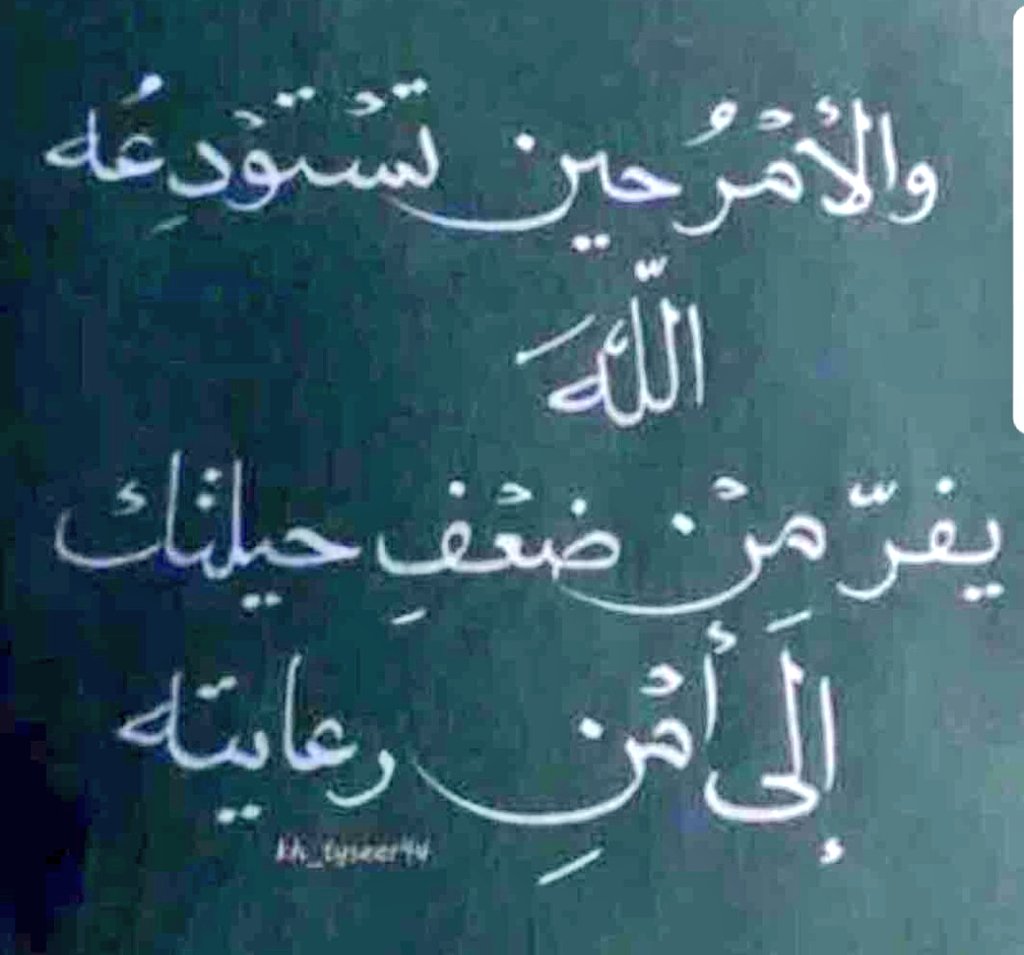 والأمْرُ حين تسْتوْدِعُه
اللّهَ
يفرّ مِنْ ضعْفِ حيلتك
إلَى أمْنِ رعايته
kh_tyseer94